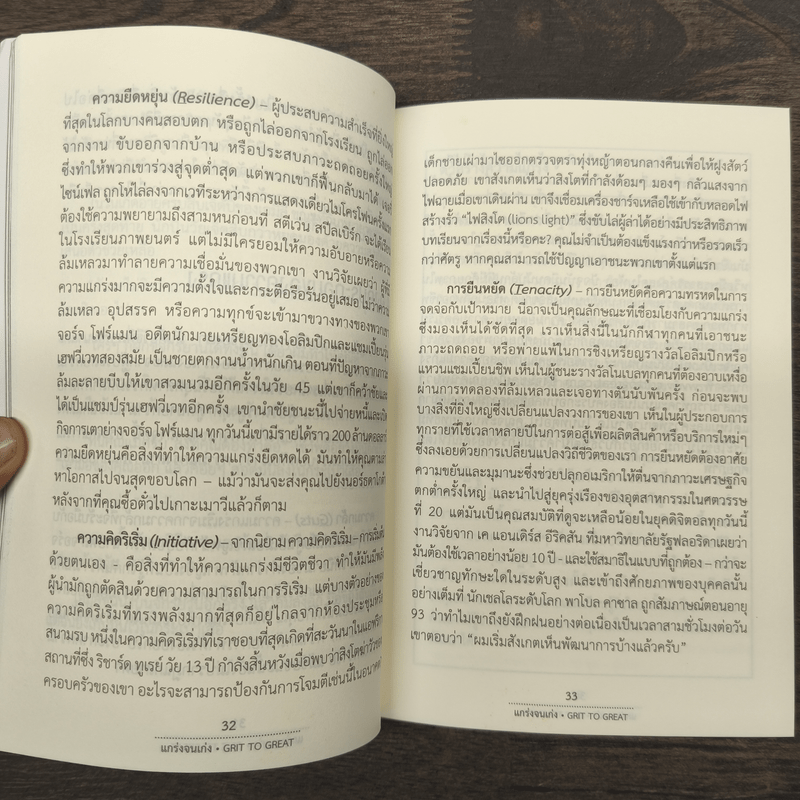 ความยืดหยุ่น (Resilience) – ผู้ประสบความสำเร็จที่ยิ่งใหญ่
ที่สุดในโลกบางคนสอบตก หรือถูกไล่ออกจากโรงเรียน ถูกไล่ออก
จากงาน ขับออกจากบ้าน หรือประสบภาวะถดถอยครั้งใหญ่
ซึ่งทำให้พวกเขาร่วงสู่จุดต่ำสุด แต่พวกเขาก็ฟื้นกลับมาได้
ไซน์เฟล ถูกโห่ไล่ลงจากเวทีระหว่างการแสดงเดี่ยวไมโครโฟนครั้งแรก
ต้องใช้ความพยายามถึงสามหนก่อนที่ สตีเว่น สปีลเบิร์ก จะได้เรียน
ในโรงเรียนภาพยนตร์ แต่ไม่มีใครยอมให้ความอับอายหรือความ
ล้มเหลวมาทำลายความเชื่อมั่นของพวกเขา งานวิจัยเผยว่า ผู้ที่มี
ความแกร่งมากจะมีความตั้งใจและกระตือรือร้นอยู่เสมอ ไม่ว่าความ
ล้มเหลว อุปสรรค หรือความทุกข์จะเข้ามาขวางทางของพวกเขา
จอร์จ โฟร์แมน อดีตนักมวยเหรียญทองโอลิมปิกและแชมเปี้ยนรุ่น
เฮฟวี่เวทสองสมัย เป็นชายตกงานน้ำหนักเกิน ตอนที่ปัญหาจากภาวะ
ล้มละลายบีบให้เขาสวมนวมอีกครั้งในวัย 45 แต่เขาก็คว้าชัยและ
ได้เป็นแชมป์รุ่นเฮฟวี่เวทอีกครั้ง เขานำชัยชนะนี้ไปจ่ายหนี้และเปิด
กิจการเตาย่างจอร์จ โฟร์แมน ทุกวันนี้เขามีรายได้ราว 200 ล้านดอลลาร์
ความยืดหยุ่นคือสิ่งที่ทำให้ความแกร่งยืดหดได้ มันทำให้คุณตามล่า
หาโอกาสไปจนสุดขอบโลก – แม้ว่ามันจะส่งคุณไปยังนอร์ธดาโกต้า
หลังจากที่คุณซื้อตั๋วไปเกาะเมาวีแล้วก็ตาม
ความคิดริเริ่ม (Initiative) – จากนิยาม ความคิดริเริ่ม – การเริ่มต้น
ด้วยตนเอง - คือสิ่งที่ทำให้ความแกร่งมีชีวิตชีวา ทำให้มันมีพลัง
ผู้นำมักถูกตัดสินด้วยความสามารถในการริเริ่ม แต่บางตัวอย่างของ
ความคิดริเริ่มที่ทรงพลังมากที่สุดก็อยู่ไกลจากห้องประชุมหรือ
สนามรบ หนึ่งในความคิดริเริ่มที่เราชอบที่สุดเกิดที่สะวันนาในแอฟริกา
สถานที่ซึ่ง ริชาร์ด ทูเรย์ วัย 13 ปี กำลังสิ้นหวังเมื่อพบว่าสิงโตฆ่าวัวของ
ครอบครัวของเขา อะไรจะสามารถป้องกันการโจมตีเช่นนี้ในอนาคต
32
แกร่งจนเก่ง • GRIT TO GREAT
เด็กชายเผ่ามาไซออกตรวจตราทุ่งหญ้าตอนกลางคืนเพื่อให้ฝูงสัตว์
ปลอดภัย เขาสังเกตเห็นว่าสิงโตที่กำลังด้อมๆ มองๆ กลัวแสงจาก
ไฟฉายเมื่อเขาเดินผ่าน เขาจึงเชื่อมเครื่องชาร์จเหลือใช้เข้ากับหลอดไฟ
สร้างรั้ว “ไฟสิงโต (lions light)” ซึ่งขับไล่ผู้ล่าได้อย่างมีประสิทธิภาพ
บทเรียนจากเรื่องนี้หรือคะ? คุณไม่จำเป็นต้องแข็งแรงกว่าหรือรวดเร็ว
กว่าศัตรู หากคุณสามารถใช้ปัญญาเอาชนะพวกเขาตั้งแต่แรก
การยืนหยัด (Tenacity) – การยืนหยัดคือความทรหดในการ
จดจ่อกับเป้าหมาย นี่อาจเป็นคุณลักษณะที่เชื่อมโยงกับความแกร่ง
ซึ่งมองเห็นได้ชัดที่สุด เราเห็นสิ่งนี้ในนักกีฬาทุกคนที่เอาชนะ
ภาวะถดถอย หรือพ่ายแพ้ในการชิงเหรียญรางวัลโอลิมปิกหรือ
แหวนแชมเปี้ยนชิพ เห็นในผู้ชนะรางวัลโนเบลทุกคนที่ต้องอาบเหงื่อ
ผ่านการทดลองที่ล้มเหลวและเจอทางตันนับพันครั้ง ก่อนจะพบ
บางสิ่งที่ยิ่งใหญ่ซึ่งเปลี่ยนแปลงวงการของเขา เห็นในผู้ประกอบการ
ทุกรายที่ใช้เวลาหลายปีในการต่อสู้เพื่อผลิตสินค้าหรือบริการใหม่ๆ
ซึ่งลงเอยด้วยการเปลี่ยนแปลงวิถีชีวิตของเรา การยืนหยัดต้องอาศัย
ความขยันและมุมานะซึ่งช่วยปลุกอเมริกาให้ตื่นจากภาวะเศรษฐกิจ
ตกต่ำครั้งใหญ่ และนำไปสู่ยุครุ่งเรืองของอุตสาหกรรมในศตวรรษ
ที่ 20 แต่มันเป็นคุณสมบัติที่ดูจะเหลือน้อยในยุคดิจิตอลทุกวันนี้
งานวิจัยจาก เค แอนเดิร์ส อีริคสัน ที่มหาวิทยาลัยรัฐฟลอริดาเผยว่า
มันต้องใช้เวลาอย่างน้อย 10 ปี - และใช้สมาธิในแบบที่ถูกต้อง – กว่าจะ
เชี่ยวชาญทักษะใดในระดับสูง และเข้าถึงศักยภาพของบุคคลนั้น
อย่างเต็มที่ นักเชลโลระดับโลก พาโบล คาซาล ถูกสัมภาษณ์ตอนอายุ
93 ว่าทำไมเขาถึงยังฝึกฝนอย่างต่อเนื่องเป็นเวลาสามชั่วโมงต่อวัน
เขาตอบว่า “ผมเริ่มสังเกตเห็นพัฒนาการบ้างแล้วครับ”
33
แกร่งจนเก่ง • GRIT TO GREAT